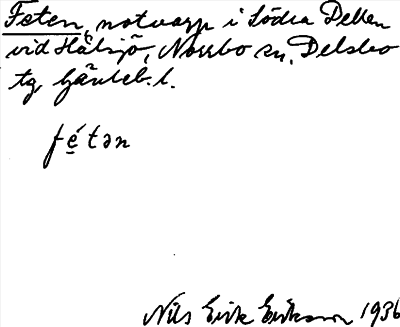 Feten, notvarp i Södra Dellen
vid Hålsjö, Norrbo sn, Delsbo
tg, Gävleb. l.
fétən
Nils Erik Eriksson 1936